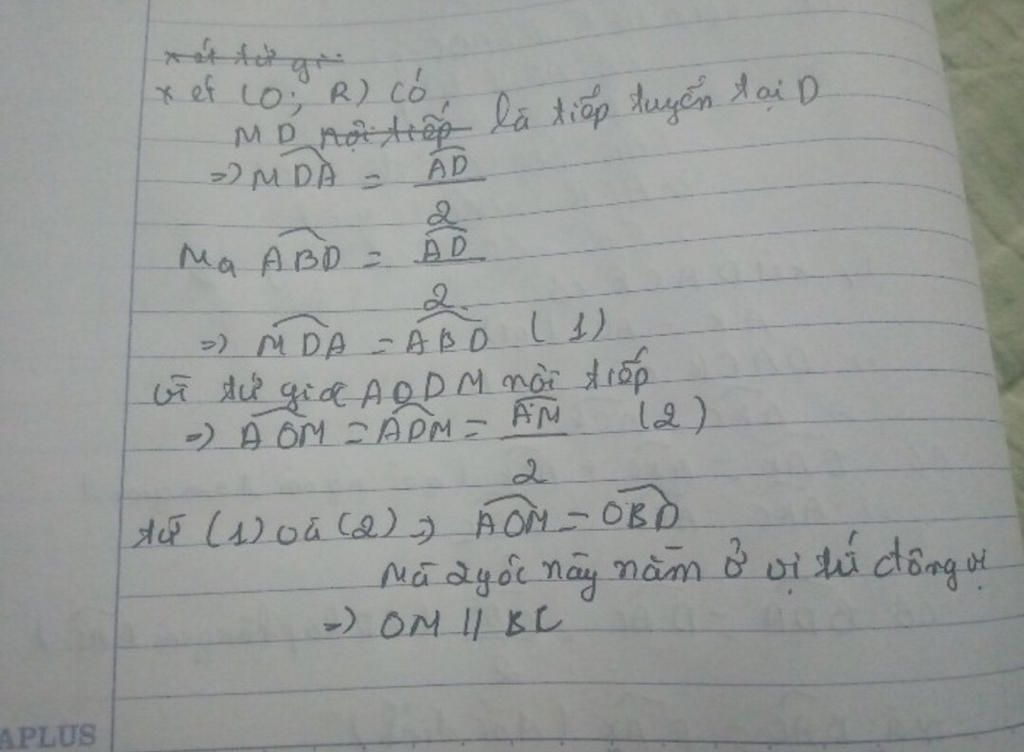 xét tứ gi
xét (O; R) có
MD nội tiếp là tiếp tuyến tại D
=> MDA = AD
2
Mà ABD = AD
2
=> MDA = ABD (1)
Vì tứ giác AODM nội tiếp
=> AOM = ADM = AM (2)
2
từ (1) và (2) => AOM = OBD
Mà 2 góc này nằm ở vị trí đồng vị
=> OM // BC
APLUS